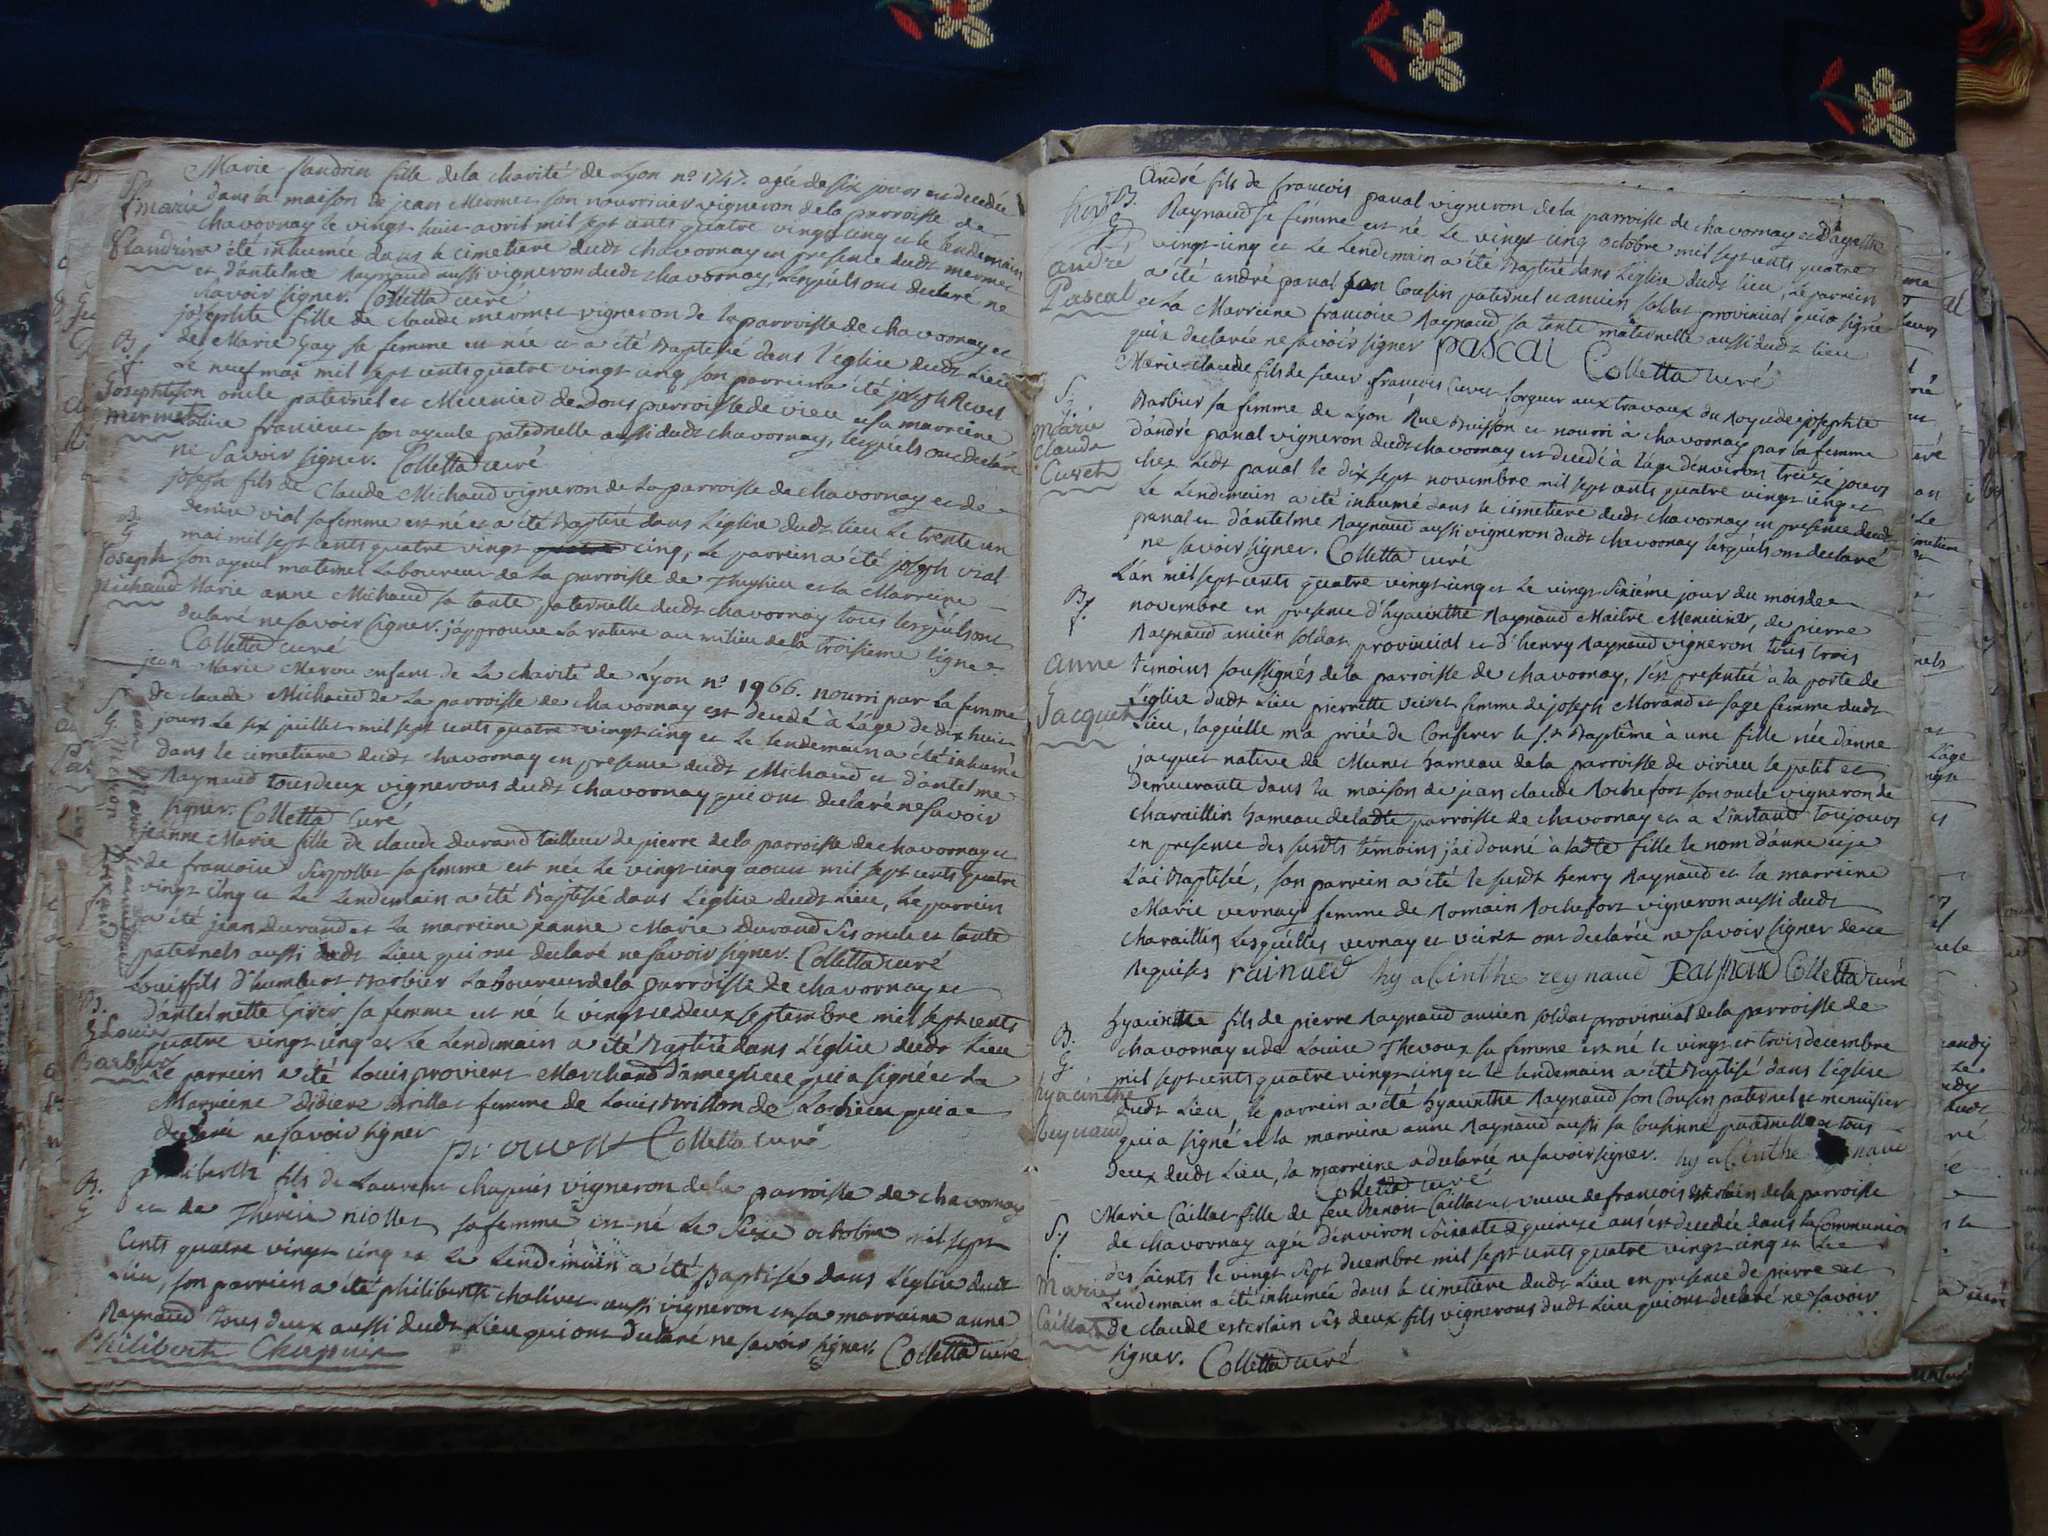 Marie flandrin fille de la charité de Lyon no 1747. agée de six jours est decedée
dans la maison de jean Mermet son nourricier vigneron de la parroisse de
chavornay le vingt huit avril mil sept cents quatre vingt cinq et le lendemain
a été inhumée dans le cimetiere dudt chavornay en presence dudt mermet
et d'antelme Raynaud aussi vigneron dudt chavornay, lesquels ont declaré ne
savoir signer. Colletta curé
S.
f. marie
flandrin
josephte fille de claude mermet vigneron de la parroisse de chavornay et
de Marie Gay sa femme est née et a été Baptisée dans l'église dudt Lieu
Le neuf mai mil sept cents quatre vingt cinq son parrein a été joseph
son oncle paternel et Meunier de Dons parroisse de vieu et sa marreine
francoise son ayeule paternelle aussi dudt chavornay, lesquels ont declaré
ne savoir signer. Colletta curé
B.
f.
Josephte
mermet
joseph fils de Claude Michaud vigneron de La parroisse de chavornay et de
Denise vial sa femme est né et a été Baptisé dans L'église dudt lieu Le trente un
mai mil sept cents quatre vingt cinq, Le parrein a été joseph vial
son ayeul maternel Laboureur de La parroisse de Thezilieu et la Marreine
Marie anne Michaud sa tante paternelle dudt chavornay tous lesquels ont
declaré ne savoir signer. j'approuve La rature au milieu de la troisieme ligne
Colletta curé
B.
G
Joseph
Michaud
jean Marie enfant de La charité de Lyon no 1966. nourri par La femme
de claude Michaud de La parroisse de chavornay est decedé à L'age de dix huit
jours Le six juillet mil sept cents quatre vingt cinq et Le lendemain a été inhumé
dans le cimetiere dudt chavornay en presence dudt Michaud et d'antelme
Raynaud tous deux vignerons dudt chavornay qui ont declaré ne savoir
signer. Colletta curé
S.
G
jeanne Marie fille de claude Durand tailleur de pierre de la parroisse de chavornay et
de francoise sa femme est née Le vingt cinq aout mil sept cents quatre
vingt cinq et Le Lendemain a été Baptisée dans L'église dudt Lieu, Le parrein
a été jean Durand et La marreine jeanne Marie Durand ses oncle et tante
paternels aussi dudt Lieu qui ont declaré ne savoir signer. Colletta curé
Louis fils d'humbert Barbier Laboureur de la parroisse de chavornay et
d'antelmette sa femme est né le vingt et deux septembre mil sept cents
quatre vingt cinq et Le Lendemain a été Baptisé dans L'église dudt Lieu
Le parrein a été Louis provient Marchand d'ameyzieu qui a signé et La
Marreine Didiere Brillat femme de Louis de Lochieu qui a
declaré ne savoir signer
provient Colletta curé
B.
G Louis
Barbier
philiberth fils de Laurent chapuis vigneron de la parroisse de chavornay
et de Therese niollet sa femme est né Le seize octobre mil sept
Cents quatre vingt cinq et Le Lendemain a été Baptisé dans L'église dudt
Lieu, son parrein a été philiberth chalivet aussi vigneron et sa marraine anne
Raynaud tous deux aussi dudt Lieu qui ont declaré ne savoir signer. Colletta curé
B.
G
Philiberth Chapuis
André fils de francois paual vigneron de la parroisse de chavornay et
Raynaud sa femme est né Le vingt cinq octobre mil sept cents quatre
vingt cinq et Le Lendemain a été Baptisé dans L'église dudt lieu, Le parrein
a été andré paual son Cousin paternel et ancien soldat provincial qui a signé
et sa Marreine francoise Raynaud sa tante maternelle aussi dudt lieu
qui a declarée ne savoir signer pascal Colletta curé
B.
G
andre
Pascal
Marie-claude fils de sieur francois Cuvet forgeur aux travaux du Roy et de josephte
Barbier sa femme de Lyon Rue Buisson et nourri à chavornay par la femme
d'andré paual vigneron dudt chavornay est decedé à l'âge d'environ treize jours
chez Ledt paual le dix sept novembre mil sept cents quatre vingt cinq et
Le Lendemain a été inhumé dans Le cimetiere dudt chavornay en presence dudt
paual et d'antelme Raynaud aussi vigneron dudt chavornay lesquels ont declaré
ne savoir signer. Colletta curé
S.
G.
marie
claude
Cuvet
L'an mil sept cents quatre vingt cinq et Le vingt sixième jour du mois de
novembre en presence d'hyacinthe Raynaud Maitre Menuisier, de pierre
Raynaud ancien soldat provincial et d'henry Raynaud vigneron tous trois
temoins soussignés de la parroisse de chavornay, s'est presentée à la porte de
L'église dudt Lieu pierrette veuret femme de joseph Morand et sage femme dudt
Lieu, laquelle m'a priée de Conferer le st Baptême à une fille née d'anne
jacquet native de Munet hameau de la parroisse de virieu le petit et
Demeurante dans la maison de jean claude Rochefort son oncle vigneron de
charaillin hameau de ladte parroisse de chavornay et a L'instant toujours
en presence des susdts témoins j'ai donné à ladte fille le nom d'anne et je
L'ai Baptisée, son parrein a été le susdt henry Raynaud et la marreine
Marie vernay femme de Romain Rochefort vigneron aussi dudt
charaillin, Lesquelles vernay et veuret ont declarée ne savoir signer de ce
Requises rainued hyacinthe reynaud Raynaud Colletta curé
B.
f.
anne
Jacquet
hyacinthe fils de pierre Raynaud ancien soldat provincial de la parroisse de
chavornay et de Louise Thevoux sa femme est né le vingt et trois decembre
mil sept cents quatre vingt cinq et le lendemain a été Baptisé dans l'église
dudt Lieu, le parrein a été hyacinthe Raynaud son Cousin paternel et menuisier
qui a signé et la marreine anne Raynaud aussi sa Cousinne paternelle tous
Deux dudt Lieu, la marreine a declarée ne savoir signer. hyacinthe
Colletta curé
B.
G.
hyacinthe
Reynaud
Marie Caillat fille de feu Benoit Caillat et veuve de francois esterlain de la parroisse
de chavornay agée d'environ soixante et quinze ans est decedée dans la Communion
des saints le vingt sept decembre mil sept cents quatre vingt cinq et Le
Lendemain a été inhumée dans le cimetiere dudt Lieu en presence de pierre et
de claude esterlain ses deux fils vignerons dudt Lieu qui ont declaré ne savoir
signer. Colletta curé
S.
f.
Marie
Caillat